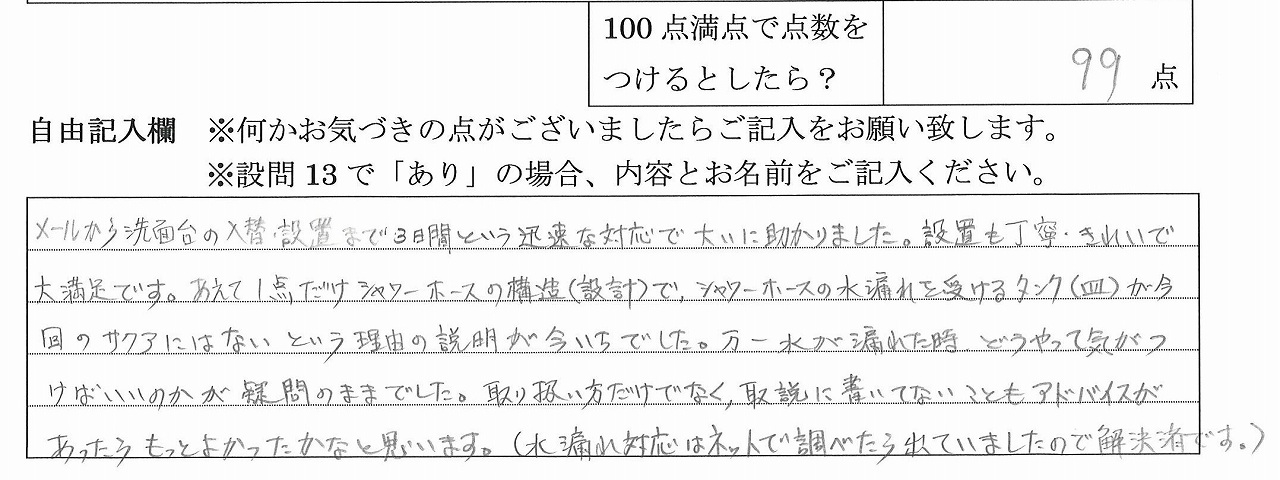 100点満点で点数を
つけるとしたら？
99 点
自由記入欄 ※何かお気づきの点がございましたらご記入をお願い致します。
※設問13で「あり」の場合、内容とお名前をご記入ください。
メールから洗面台の入替・設置まで3日間という迅速な対応で大いに助かりました。設置も丁寧・きれいで
大満足です。あえて1点だけシャワーホースの構造(設計)で、シャワーホースの水漏れを受けるタンク(皿)が今
回のサクアにはないという理由の説明が今いちでした。万一水が漏れた時どうやって気がつ
けばいいのかが疑問のままでした。取り扱い方だけでなく、取説に書いてないこともアドバイスが
あったらもっとよかったかなと思います。(水漏れ対応はネットで調べたら出ていましたので解決済です。)